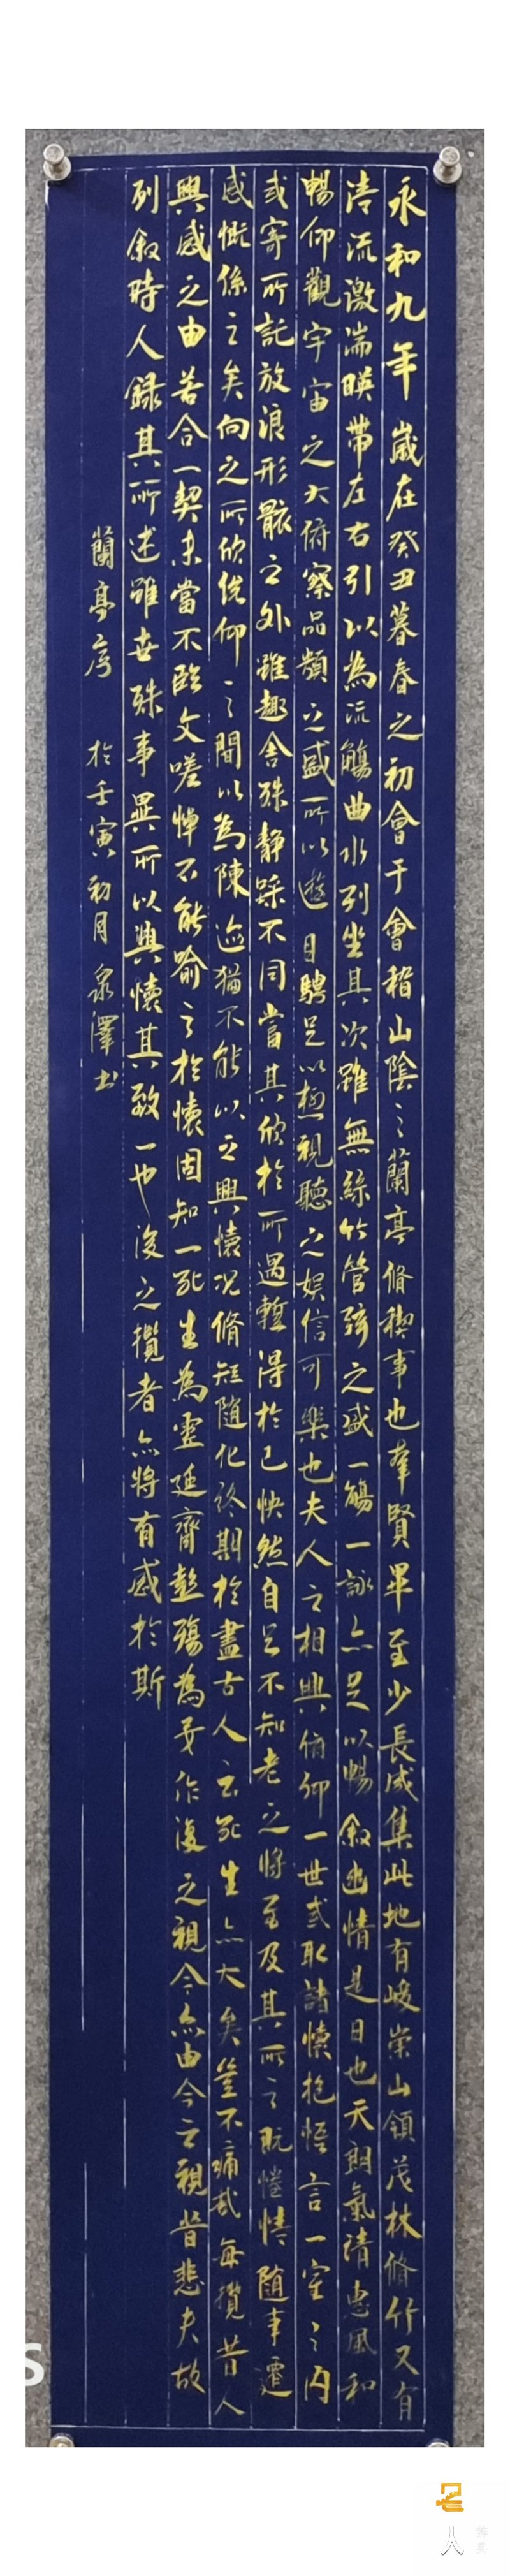 永和九年歲在癸丑暮春之初會于會稽山陰之蘭亭脩稧事也羣賢畢至少長咸集此地有峻崇山領茂林脩竹又有
清流激湍暎帶左右引以為流觴曲水列坐其次雖無絲竹管弦之盛一觴一詠亦足以暢敘幽情是日也天朗氣清惠風和
暢仰觀宇宙之大俯察品類之盛所以遊目騁足以極視聽之娛信可樂也夫人之相與俯仰一世或取諸懷抱悟言一室之內
或寄所託放浪形骸之外雖趣舍殊靜躁不同當其欣於所遇暫得於己怏然自足不知老之將至及其所之既惓情隨事遷
感慨係之矣向之所欣俛仰之間以為陳迹猶不能以之興懷況脩短隨化終期於盡古人云死生亦大矣豈不痛哉每攬昔人
興感之由若合一契未嘗不臨文嗟悼不能喻之於懷固知一死生為虛誕齊彭殤為妄作後之視今亦由今之視昔悲夫故
列敘時人錄其所述雖世殊事異所以興懷其致一也後之攬者亦將有感於斯
蘭亭序 於壬寅初月 泉澤書
S